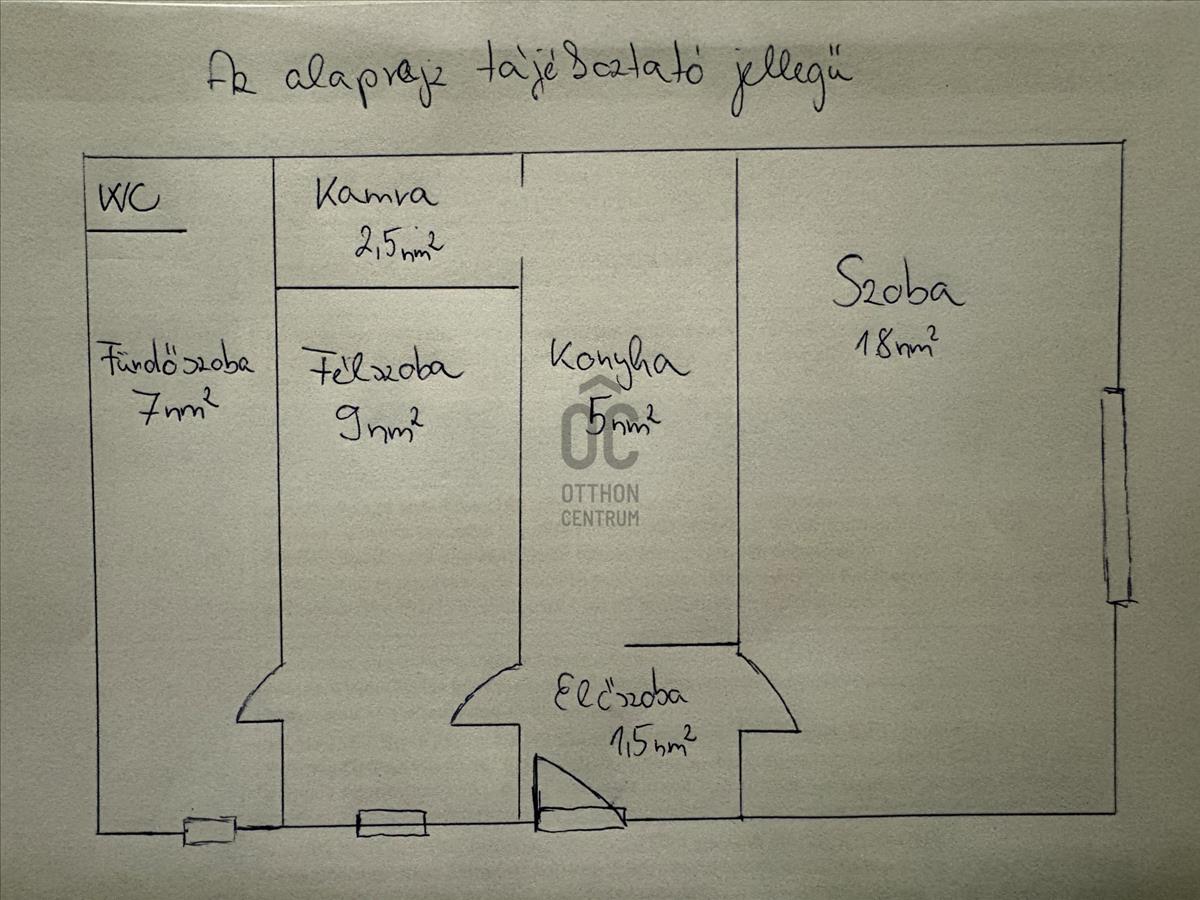 Az alaprajz tájékoztató jellegű
WC
Kamra
2,5 nm²
Szoba
18 nm²
Fürdőszoba
7 nm²
Félszoba
9 nm²
Konyha
5 nm²
OC
OTTHON
CENTRUM
Előszoba
1,5 nm²